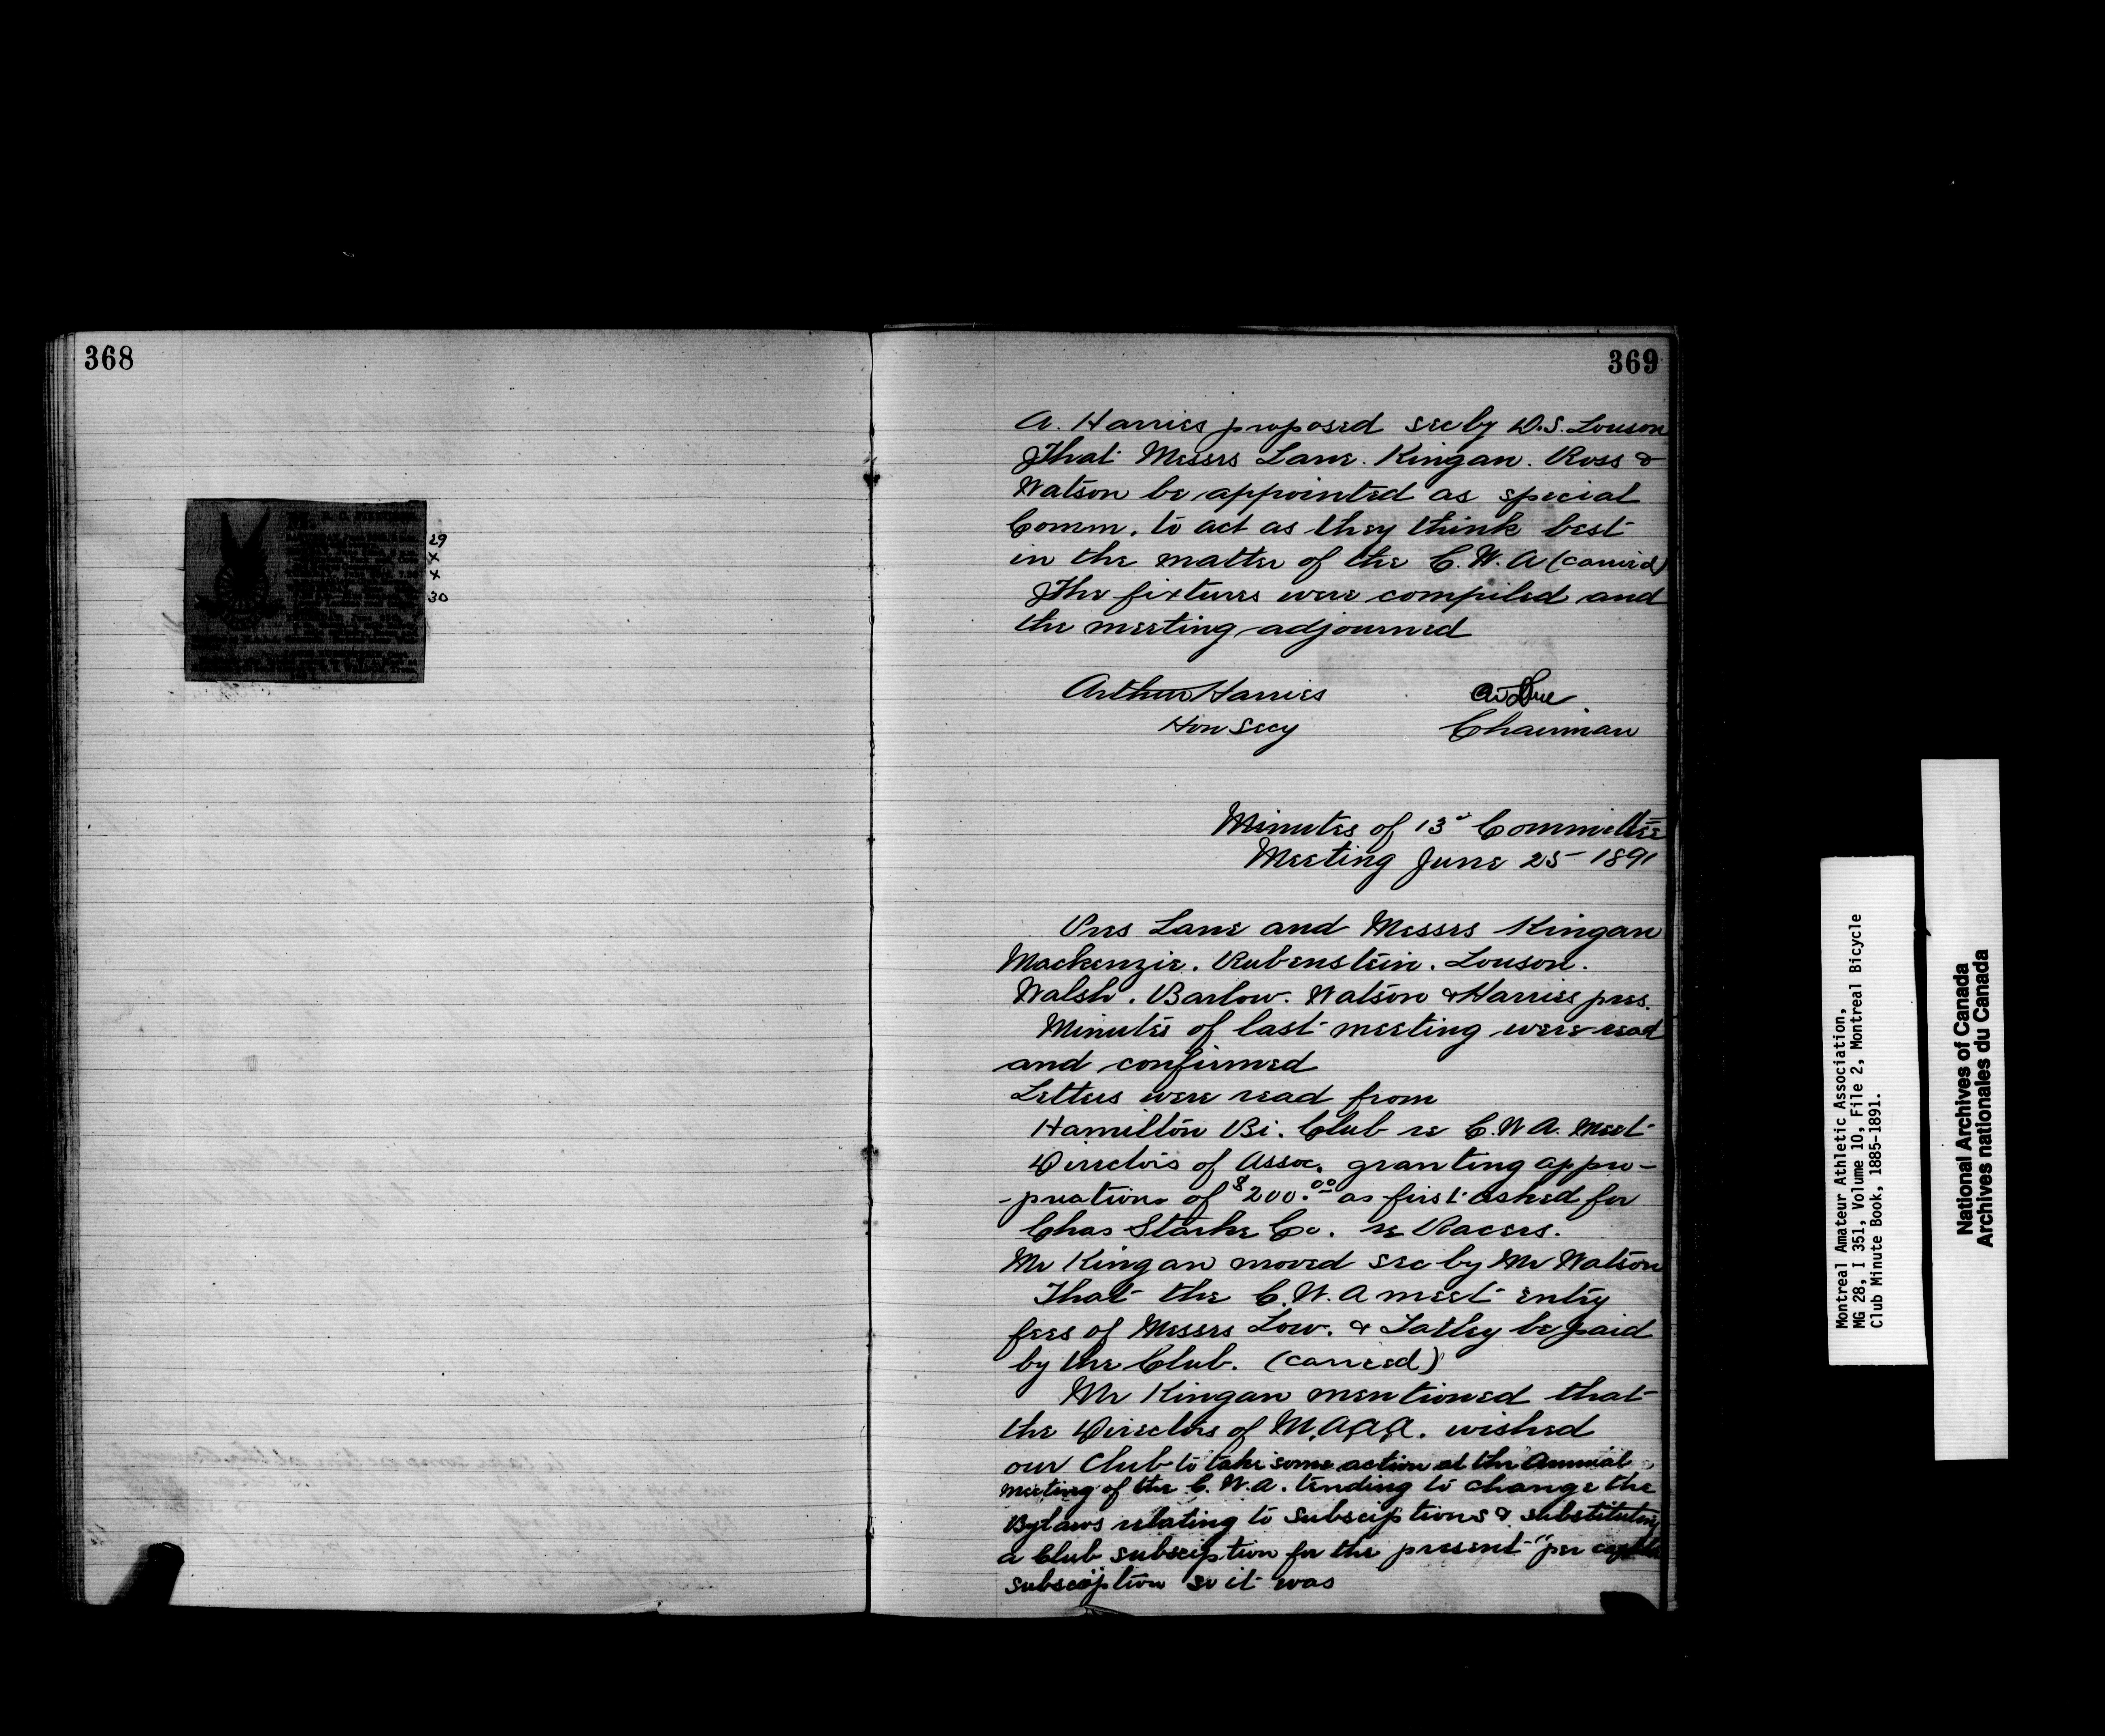 368
29
x
x
30
369
A. Harries proposed sec by D.S. Louson
That Messrs Lane. Kingan. Ross &
Watson be appointed as special
Comm. to act as they think best
in the matter of the C.W.A (carried)
The fixtures were compiled and
the meeting adjourned
Arthur Harries
Hon Secy Chairman
Minutes of 13d Committee
Meeting June 25 1891
Pres Lane and Messrs Kingan
Mackenzie. Rubenstein. Louson.
Walsh. Barlow. Watson & Harries pres.
Minutes of last meeting were read
and confirmed
Letters were read from
Hamilton Bi. Club re C.W.A. Meet
Directors of Assoc. granting appro-
-priation of $200.00 as first asked for
Chas Starke Co. re Racers.
Mr Kingan moved sec by Mr Watson
That the C.W.A meet entry
fees of Messrs Low. & Tatley be paid
by the Club. (carried)
Mr Kingan mentioned that
the Directors of M.A.A.A. wished
our Club to take some action at the Annual
meeting of the C.W.A. tending to change the
Bylaws relating to Subscriptions & substituting
a Club subscription for the present "per capita
subscription so it was
Montreal Amateur Athletic Association,
MG 28, I 351, Volume 10, File 2, Montreal Bicycle
Club Minute Book, 1885-1891.
National Archives of Canada
Archives nationales du Canada